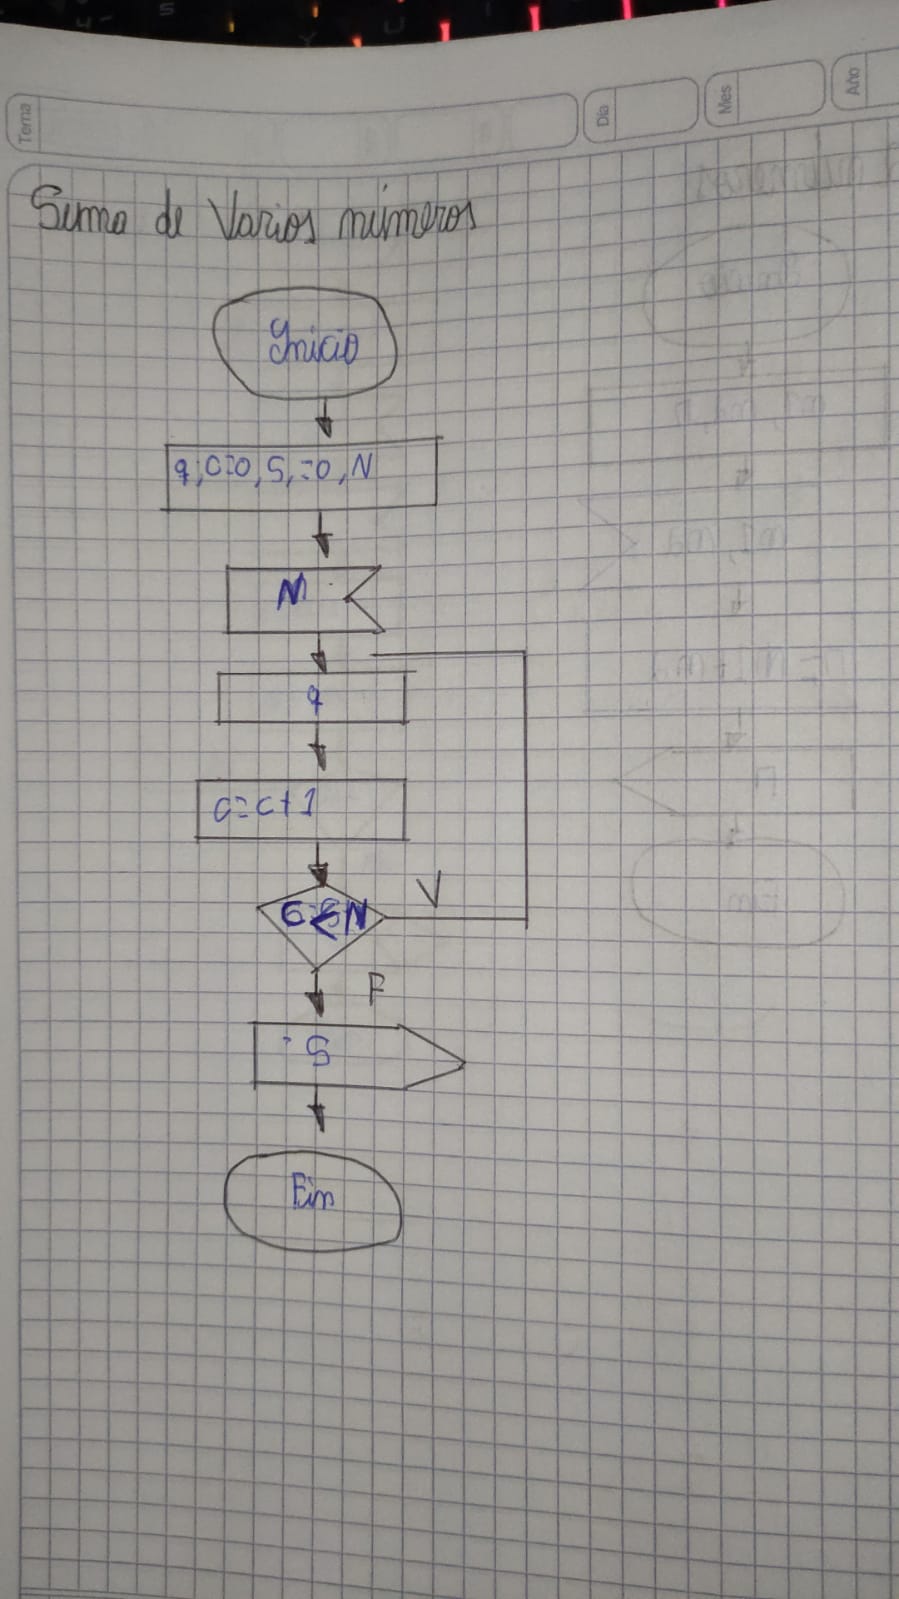 Tema
Día
Mes
Año
Suma de Varios números
Inicio
q, C=0, S,=0, N
N
q
c=c+1
N
V
F
S
Fin